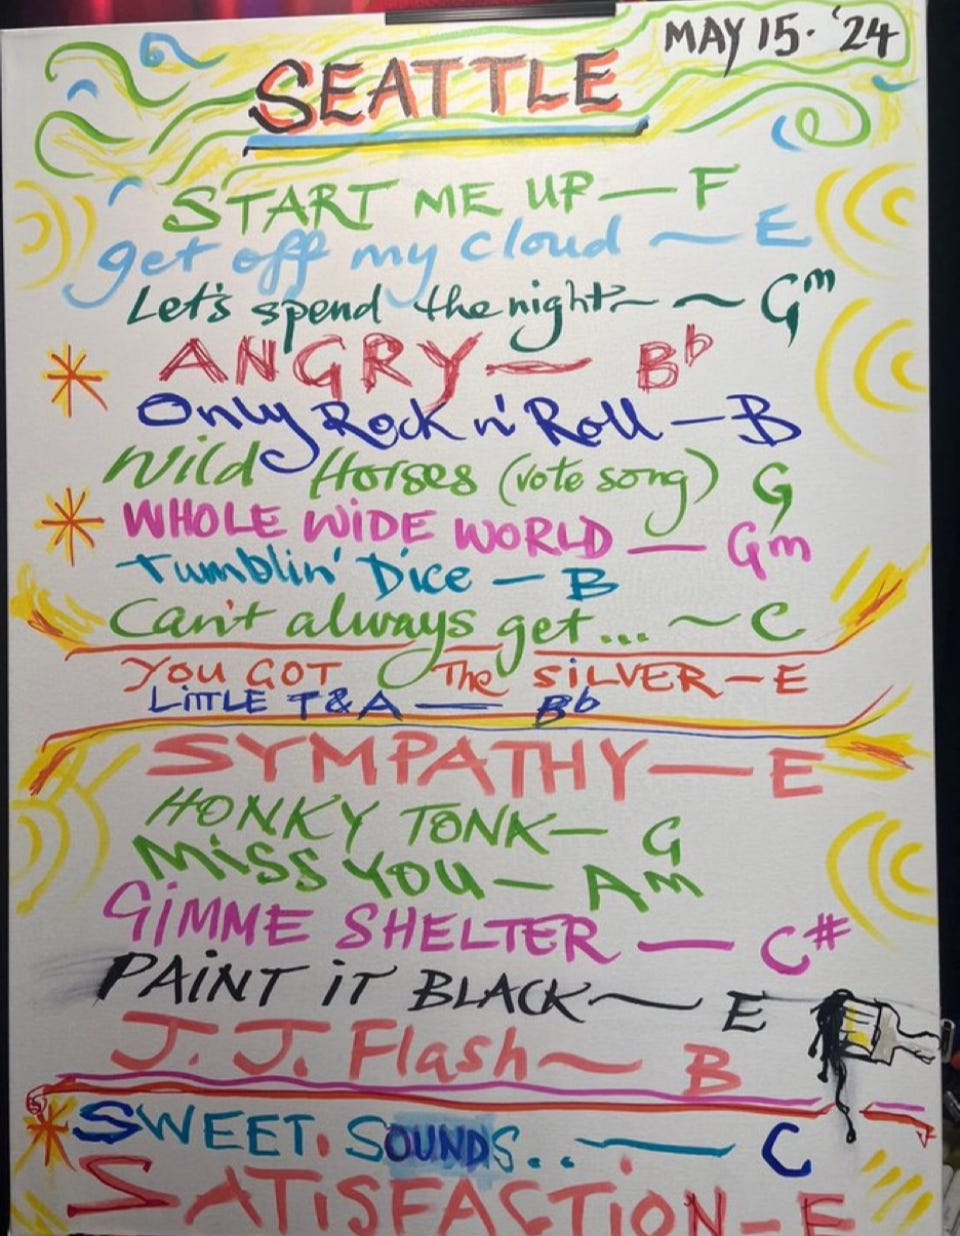 MAY 15. '24
SEATTLE
START ME UP — F
get off my cloud ~ E
Let's spend the night ~ ~ Gm
ANGRY — Bb
Only Rock n' Roll — B
Wild Horses (vote song) G
WHOLE WIDE WORLD — Gm
Tumblin' Dice — B
Can't always get... ~ C
YOU GOT The SILVER — E
LITTLE T & A — Bb
SYMPATHY — E
HONKY TONK — G
MISS YOU — Am
GIMME SHELTER — C#
PAINT IT BLACK ~ E
J.J. Flash ~ B
SWEET. SOUNDS.. — C
SATISFACTION — E